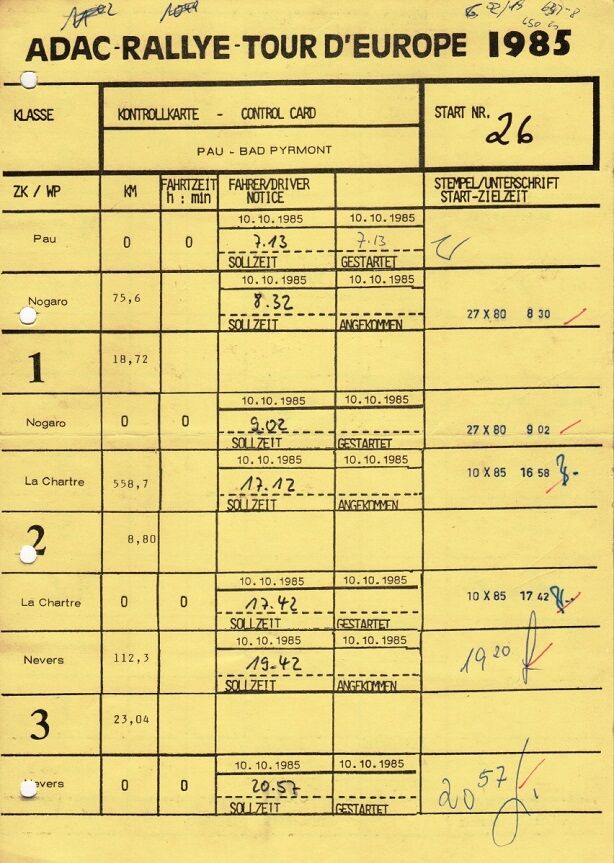 ADAC-RALLYE-TOUR D'EUROPE 1985
KLASSE
KONTROLLKARTE - CONTROL CARD
PAU - BAD PYRMONT
START NR. 26
ZK / WP KM FAHRTZEIT h : min FAHRER/DRIVER NOTICE STEMPEL/UNTERSCHRIFT START-ZIELZEIT
10.10.1985 10.10.1985
Pau 0 0 7.13 7.13
SOLLZEIT GESTARTET
10.10.1985 10.10.1985
Nogaro 75,6 8.32 27 X 80 8 30
SOLLZEIT ANGEKOMMEN
1 18,72
10.10.1985 10.10.1985
Nogaro 0 0 9.02 27 X 80 9 02
SOLLZEIT GESTARTET
10.10.1985 10.10.1985
La Chartre 558,7 17.12 10 X 85 16 58
SOLLZEIT ANGEKOMMEN
2 8,80
10.10.1985 10.10.1985
La Chartre 0 0 17.42 10 X 85 17 42
SOLLZEIT GESTARTET
10.10.1985 10.10.1985
Nevers 112,3 19.42 19 20
SOLLZEIT ANGEKOMMEN
3 23,04
10.10.1985 10.10.1985
Nevers 0 0 20.57 20 57
SOLLZEIT GESTARTET